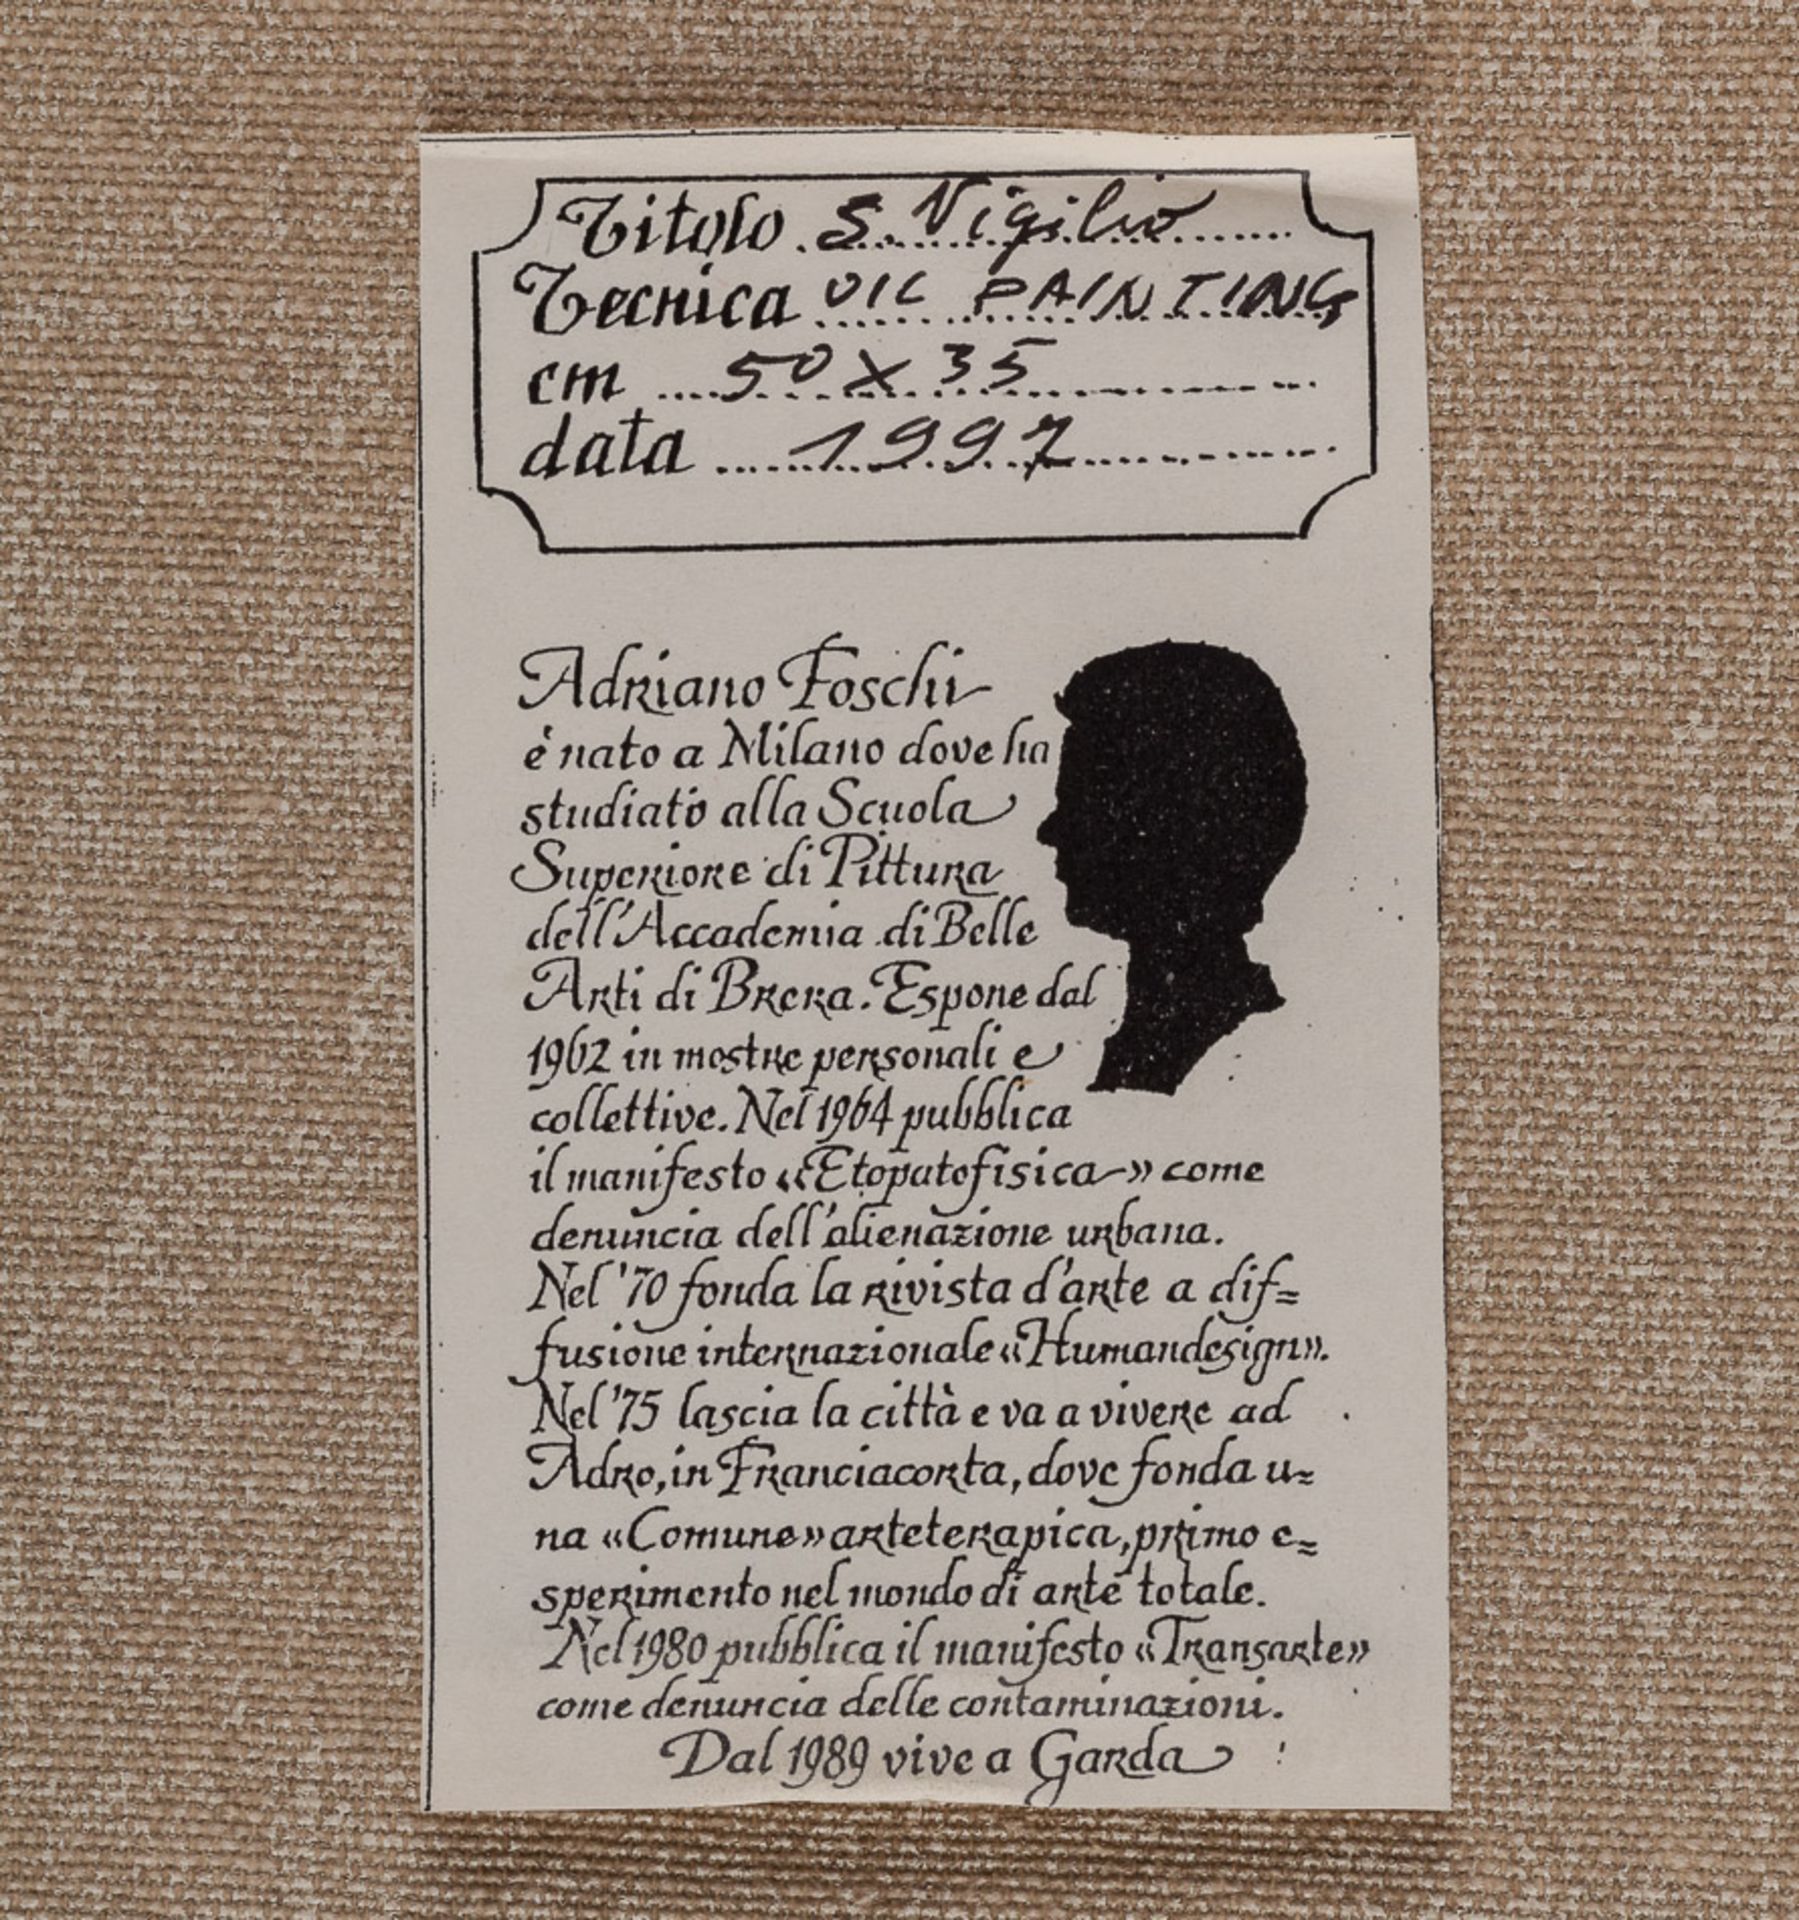 Titolo S. Vigilio
Tecnica OIL PAINTING
cm 50 X 35
data 1997
Adriano Foschi
è nato a Milano dove ha
studiato alla Scuola
Superiore di Pittura
dell'Accademia di Belle
Arti di Brera. Espone dal
1962 in mostre personali e
collettive. Nel 1964 pubblica
il manifesto «Etopatofisica» come
denuncia dell'alienazione urbana.
Nel '70 fonda la rivista d'arte a dif=
fusione internazionale «Humandesign».
Nel '75 lascia la città e va a vivere ad
Adro, in Franciacorta, dove fonda u=
na «Comune» arteterapica, primo e=
sperimento nel mondo di arte totale.
Nel 1980 pubblica il manifesto «Transarte»
come denuncia delle contaminazioni.
Dal 1989 vive a Garda